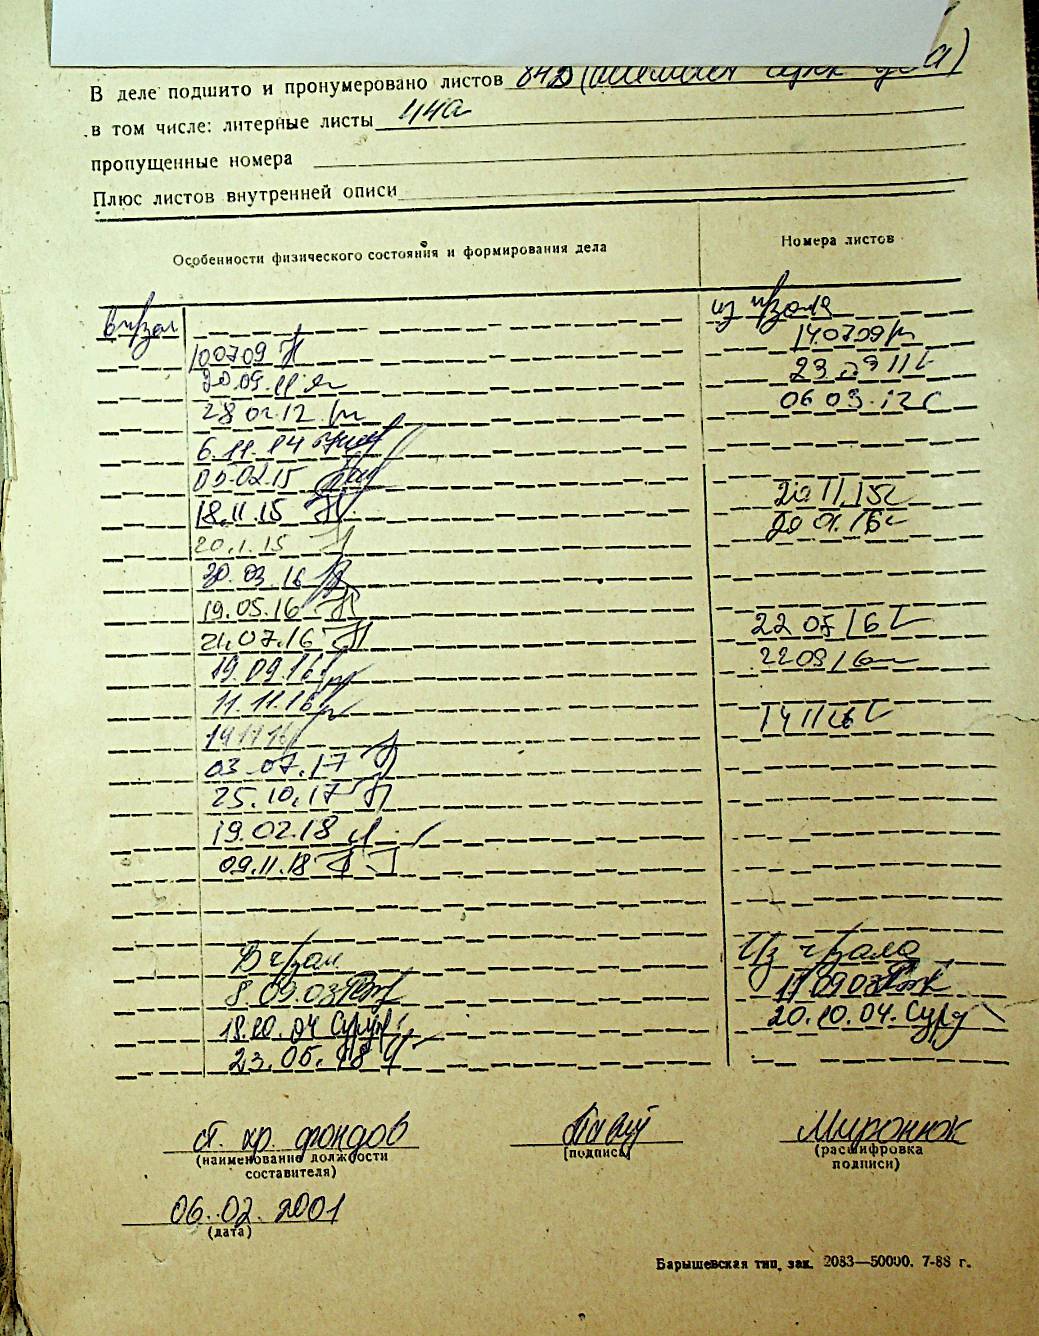 В деле подшито и пронумеровано листов
в том числе: литерные листы 44а
пропущенные номера
Плюс листов внутренней описи
Особенности физического состояния и формирования дела Номера листов
в ч/зал из ч/зала
100709 140709
20.09.11 23 09 11
28 02.12 06 03.12
6.11.14
09.02.15
18.11.15 20 11.15
20.1.15 20 01.16
30.03.16
19.05.16
21.07.16 22 07 16
19.09.16 22 09 16
11.11.16
19 11 16 14 11 16
03.07.17
25.10.17
19.02.18
09.11.18
В ч/зал Из ч/зала
8.09.03 11 09 03
18.10.04 20.10.04.
23.05.18
ст. хр. фондов Миронюк
(наименование должности (подпись) (расшифровка
составителя) подписи)
06.02.2001
(дата)
Барышевская тип. зак. 2083—50000. 7-88 г.